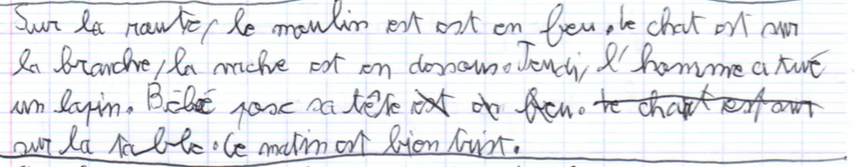 Sur la route, le moulin est est en feu. Le chat est sur
la branche, la niche est en dessous. Jeudi, l'homme a tué
un lapin. Bébé pose sa tête
sur la table. Ce matin est bien trist.